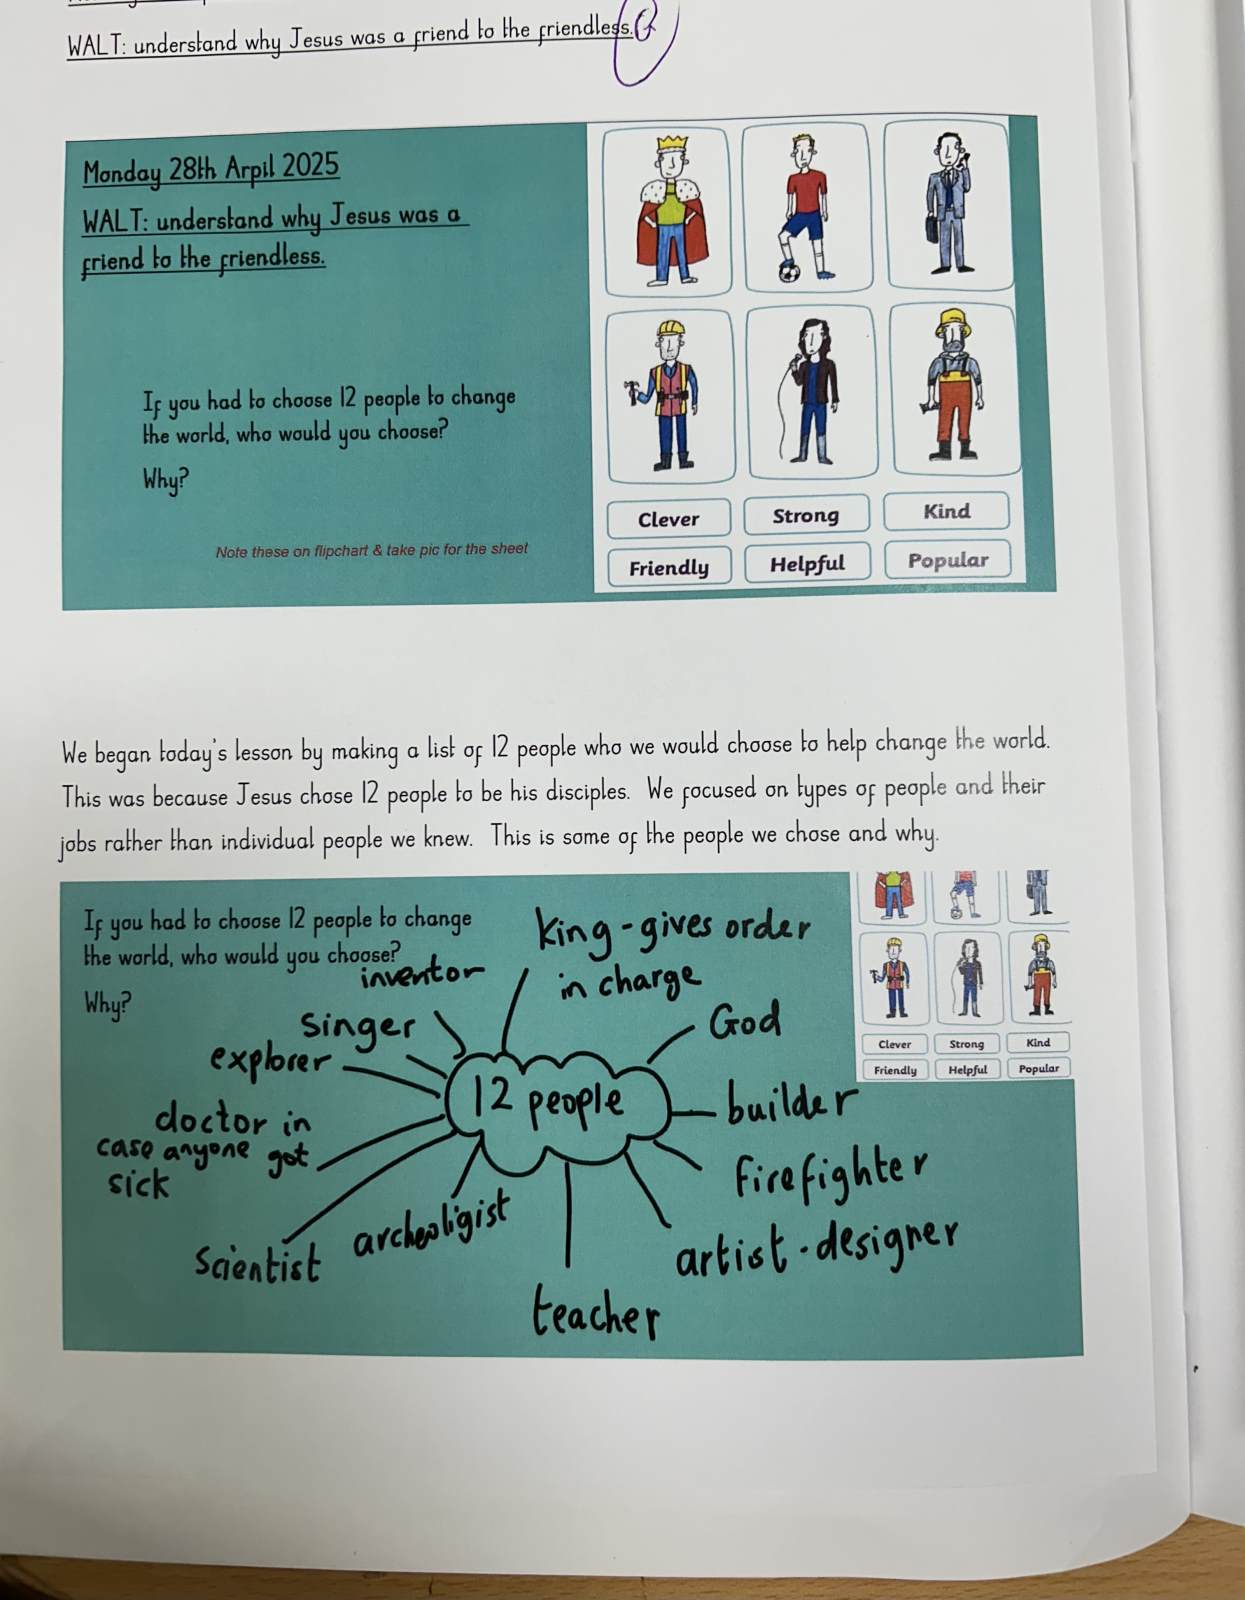 WALT: understand why Jesus was a friend to the friendless.
Monday 28th Arpil 2025
WALT: understand why Jesus was a
friend to the friendless.
If you had to choose 12 people to change
the world, who would you choose?
Why?
Note these on flipchart & take pic for the sheet
Clever Strong Kind
Friendly Helpful Popular
We began today's lesson by making a list of 12 people who we would choose to help change the world.
This was because Jesus chose 12 people to be his disciples. We focused on types of people and their
jobs rather than individual people we knew. This is some of the people we chose and why.
If you had to choose 12 people to change
the world, who would you choose?
Why?
king - gives order
in charge
inventor
singer
explorer
doctor in
case anyone got
sick
scientist
archeoligist
teacher
artist - designer
firefighter
builder
God
12 people
Clever Strong Kind
Friendly Helpful Popular